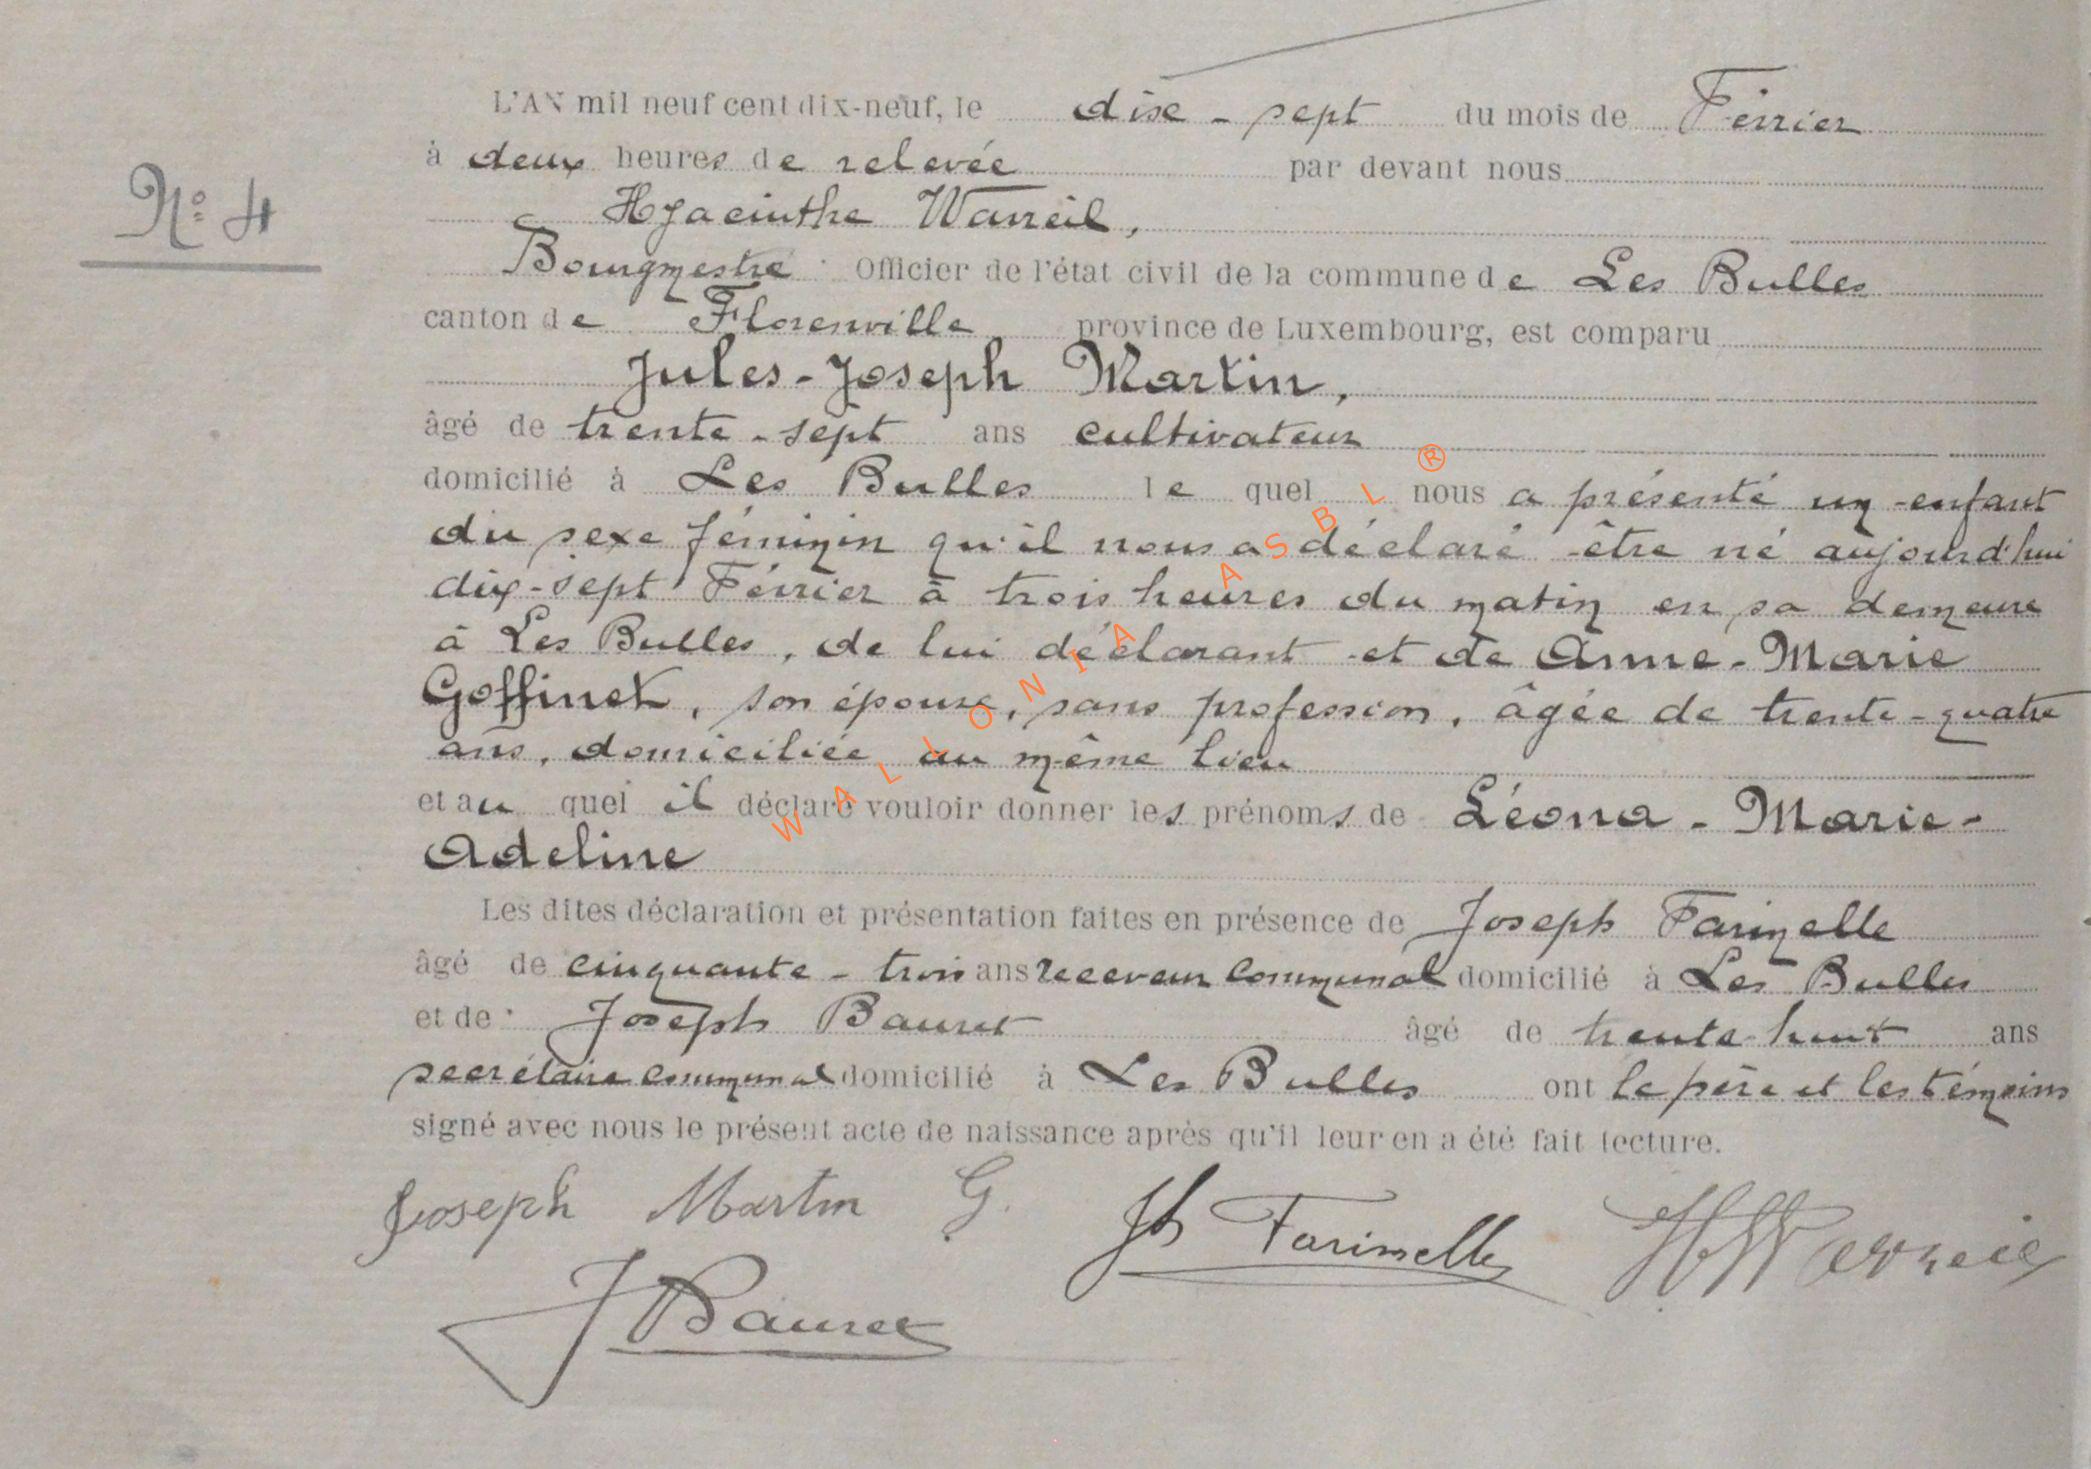 L'AN mil neuf cent dix-neuf, le dise-sept du mois de Février
à deux heures de relevée par devant nous
Nº 4
Hyacinthe Warreil,
Bourgmestre Officier de l'état civil de la commune de Les Bulles
canton de Florenville province de Luxembourg, est comparu
Jules-Joseph Martin,
âgé de trente-sept ans cultivateur
domicilié à Les Bulles le quel nous a présenté un enfant
du sexe féminin qu'il nous a déclaré être né aujourd'hui
dix-sept Février à trois heures du matin en sa demeure
à Les Bulles, de lui déclarant et de Anne-Marie
Goffinet, son épouse, sans profession, âgée de trente-quatre
ans, domiciliée au même lieu
et au quel il déclare vouloir donner les prénoms de Léona-Marie-
Adeline
Les dites déclaration et présentation faites en présence de Joseph Farinelle
âgé de cinquante-trois ans receveur communal domicilié à Les Bulles
et de Joseph Bauret âgé de trente-huit ans
secrétaire communal domicilié à Les Bulles ont le père et les témoins
signé avec nous le présent acte de naissance après qu'il leur en a été fait lecture.
Joseph Martin G. Jh Farinelle
J Bauret
WALLONIA ASBL ®